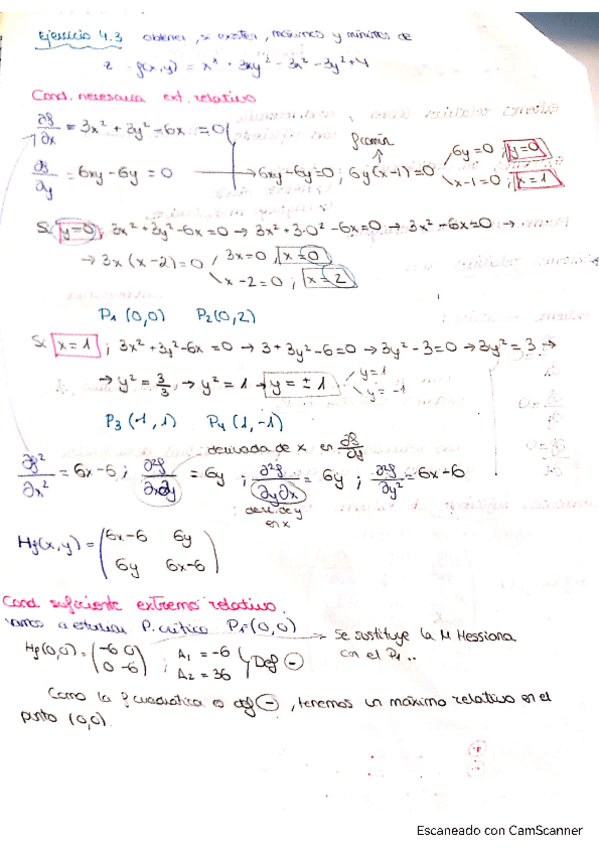 Ejercicio 4.3 obtener, si existen, máximos y mínimos de
z = f(x,y) = x³ + 3xy² - 3x² - 3y² + 4
Cond. necesaria ext. relativo
∂f/∂x = 3x² + 3y² - 6x = 0
f común
∂f/∂y = 6xy - 6y = 0 → 6xy - 6y = 0 ; 6y(x-1) = 0 / 6y = 0 ; y = 0 \ x-1 = 0 ; x = 1
Si y=0 ; 3x² + 3y² - 6x = 0 → 3x² + 3·0² - 6x = 0 → 3x² - 6x = 0 →
→ 3x (x-2) = 0 / 3x = 0 , x = 0 \ x-2 = 0 ; x = 2
P1 (0,0) P2 (0,2)
Si x = 1 ; 3x² + 3y² - 6x = 0 → 3 + 3y² - 6 = 0 → 3y² - 3 = 0 → 3y² = 3 →
→ y² = 3/3 → y² = 1 → y = ± 1 / y = 1 \ y = -1
P3 (1, 1) P4 (1, -1)
derivada de x en ∂f/∂y
∂f²/∂x² = 6x - 6 ; ∂²f/∂x∂y = 6y ; ∂²f/∂y∂x = 6y ; ∂²f/∂y² = 6x - 6
deri. de y
en x
Hf(x,y) = (6x-6 6y
6y 6x-6)
Cond. suficiente extremo relativo.
Vamos a estudiar P. crítico P1 = (0,0) → Se sustituye la M Hessiana
con el P1 ..
Hf(0,0) = (-6 0
0 -6) ; A1 = -6
A2 = 36 Def ⊖
Como la f cuadrática es def ⊖, tenemos un máximo relativo en el
punto (0,0).
Escaneado con CamScanner